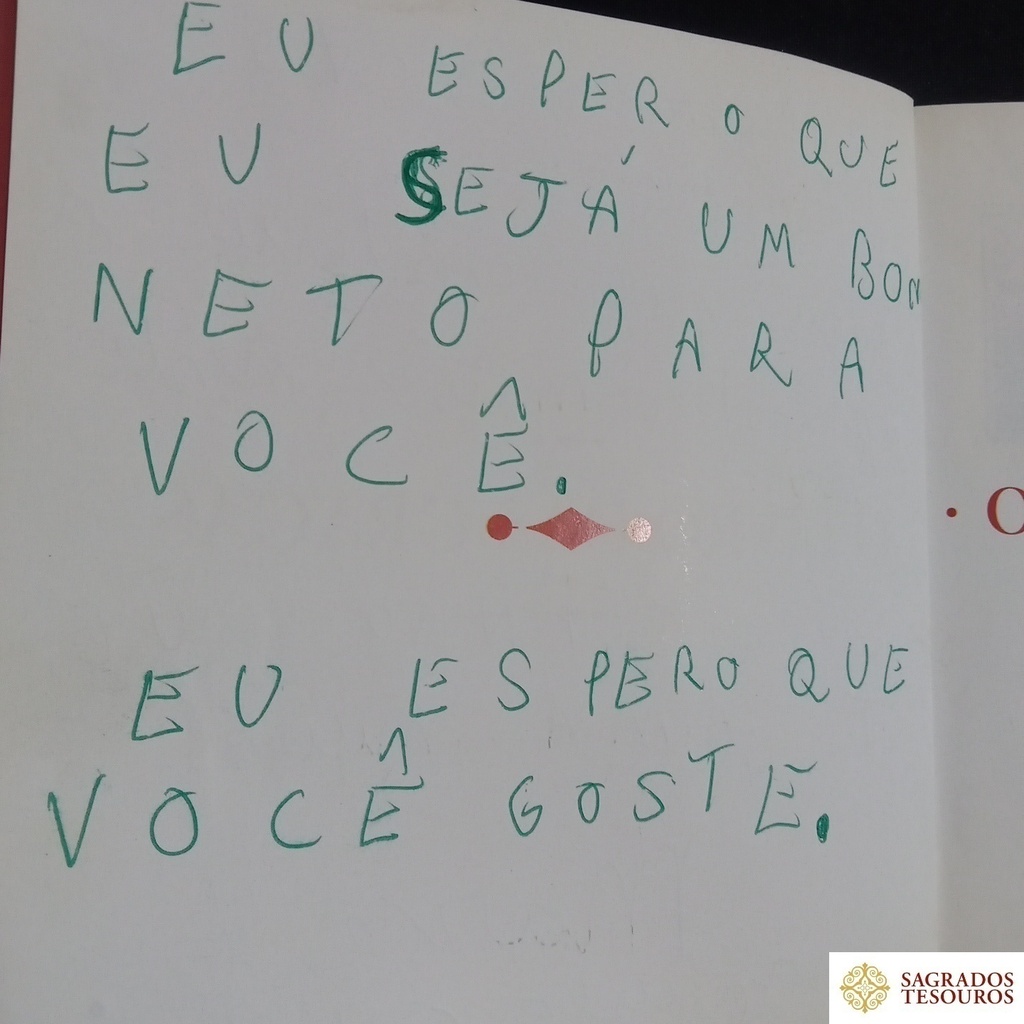 EU ESPERO QUE
EU SEJÁ UM BOM
NETO PARA
VOCÊ.
EU ESPERO QUE
VOCÊ GOSTE.
• C
SAGRADOS
TESOUROS